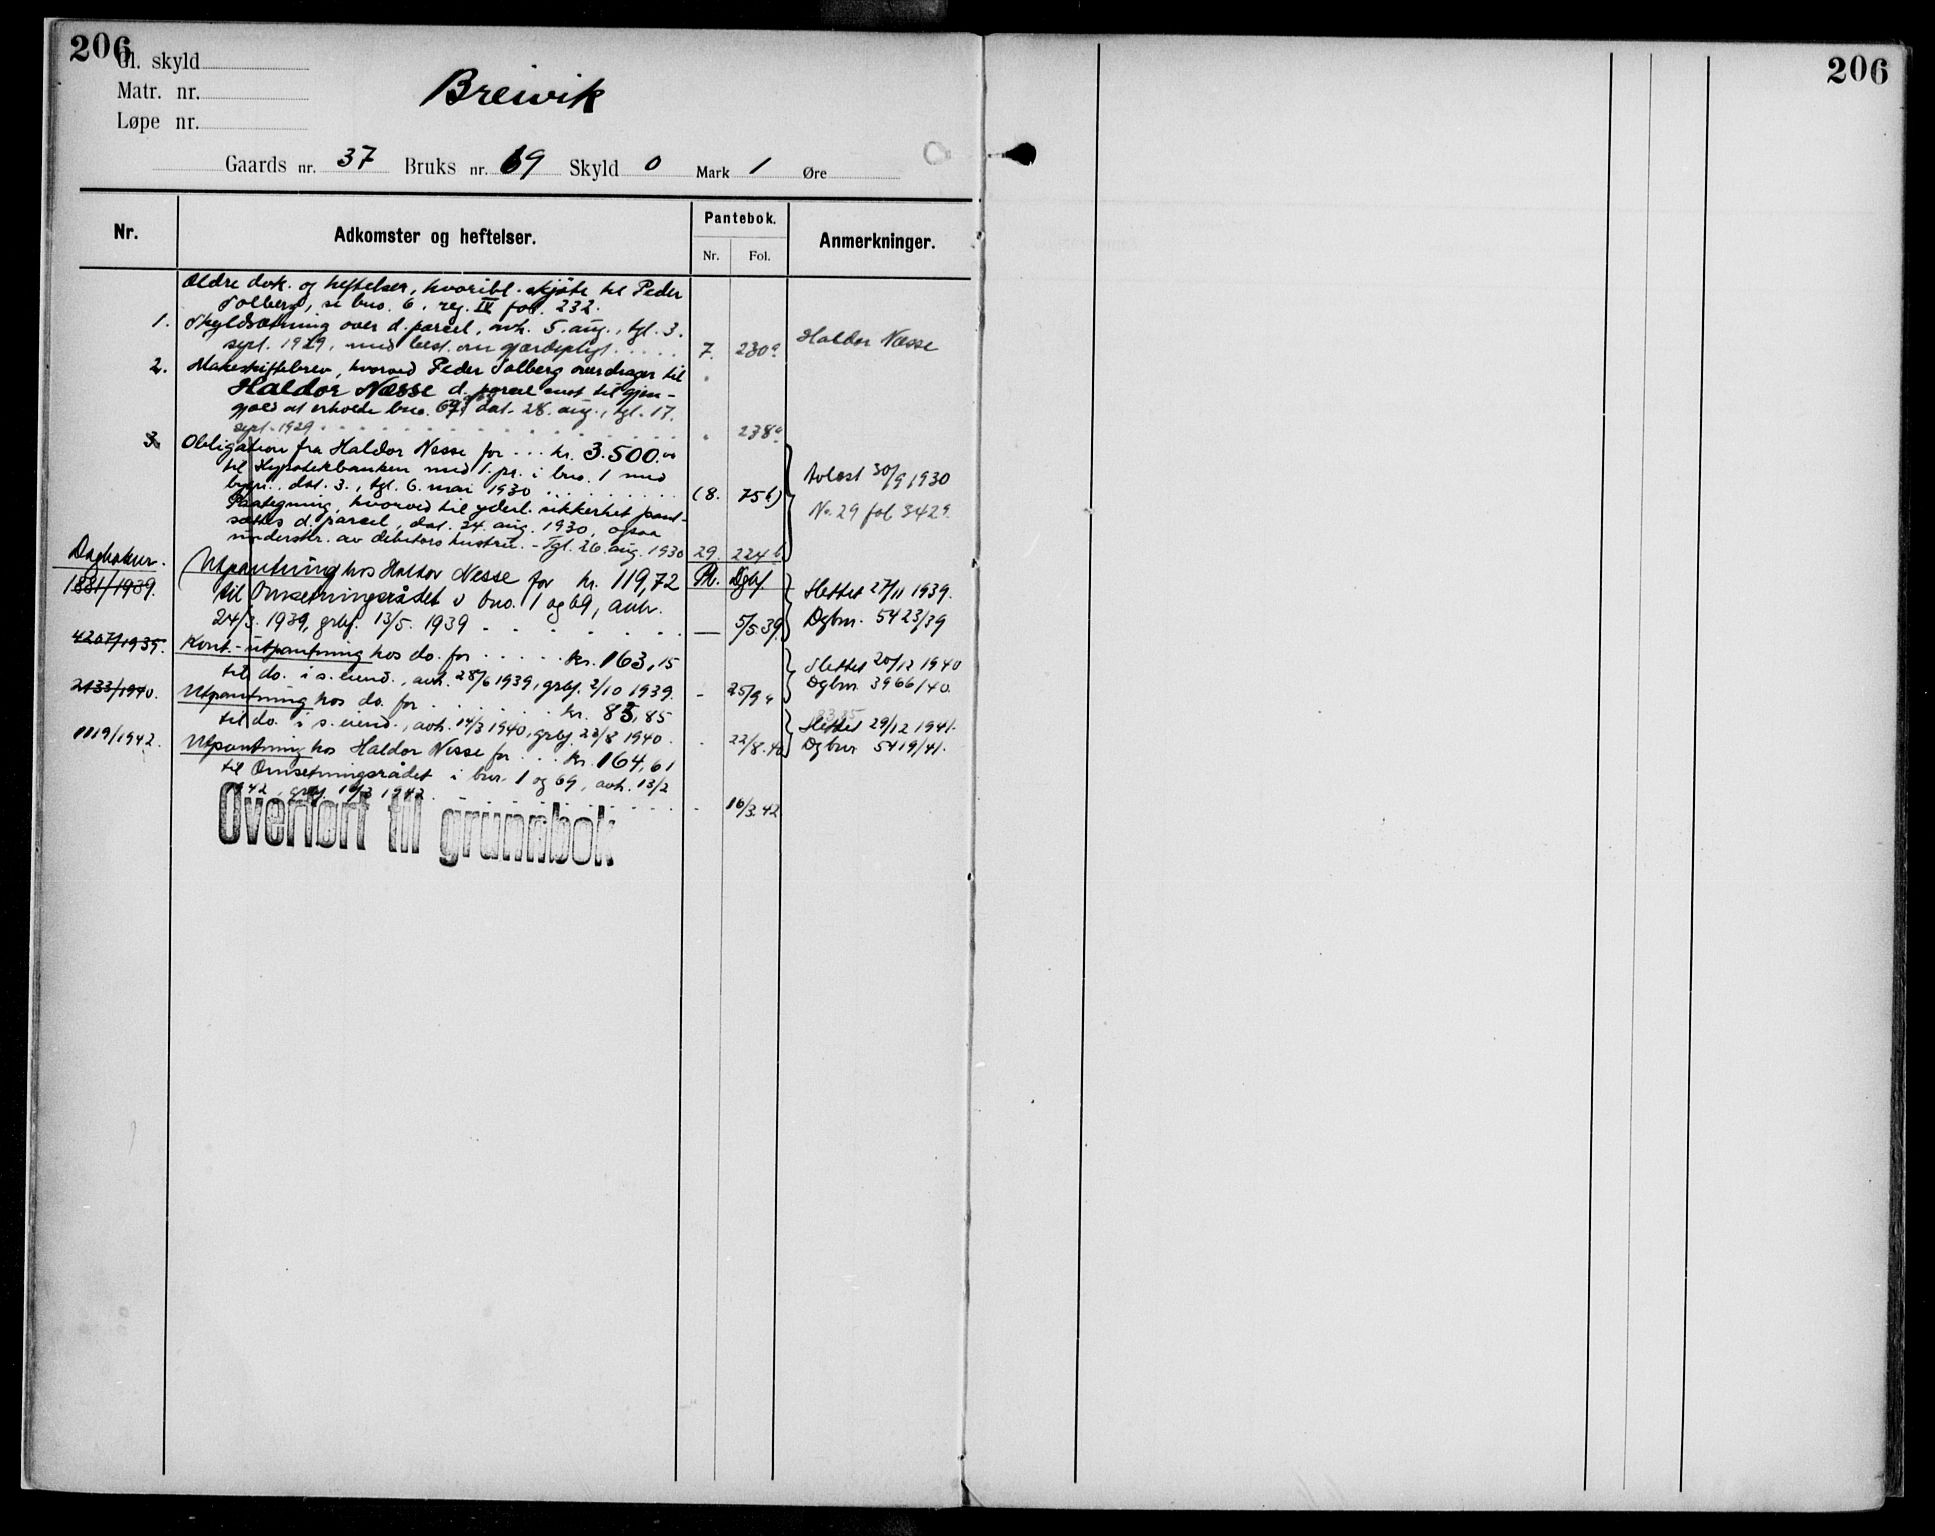 206
206
Gl. skyld
Matr. nr.
Breivik
Løpe nr.
Gaards nr. 37 Bruks nr. 69 Skyld 0 Mark 1 Øre
Nr. Adkomster og heftelser. Pantebok. Anmerkninger.
Nr. Fol.
Ældre dok. og heftelser, hvoribl. skjøte til Peder
Solberg, se bno. 6, reg. IV fol. 232.
1. Skyldsætning over d. parcel, avh. 5. aug., tgl. 3.
sept. 1929, med best. om gjærdepligt 7. 230a Haldor Næsse
2. Makeskiftebrev, hvorved Peder Solberg overdrager til
Haldor Næsse d. parcel mot til gjen-
gjæld at erholde bno. dat. 28. aug., tgl. 17.
sept. 1929 " 238a
3. Obligation fra Haldor Nesse for kr. 3.500.00
til Hypotekbanken med 1. pr. i bno. 1 med
bygn., dat. 3., tgl. 6. mai 1930 (8. 75b) Avlæst 30/9 1930
Paategning, hvorved til yderl. sikkerhet pant-
sættes d. parcel, dat. 24. aug. 1930, ogsaa No. 29 fol 342a
understr. av debitors hustru. - Tgl. 26. aug. 1930 29. 224b
Dagboknr. Utpantning hos Haldor Nesse for kr. 119,72 Pb. Dgbf.
1881/1939. til Omsetningsrådet i bno. 1 og 69, avh. Slettet 27/11 1939.
24/3 1939, grbf. 13/5. 1939 — 5/5.39 Dgbnr. 5423/39
4207/1935. Kont.-utpantning hos do. for kr. 163,15 Slettet 20/12 1940
til do. i s. eiend., avh. 28/6 1939, grbf. 2/10 1939. - 25/9 " Dgbnr. 3966/40.
2133/1940. Utpantning hos do. for kr. 83,85
til do. i s. eiend., avh. 14/3 1940, grbf. 23/8 1940. - 22/8.40 Slettet 29/12 1941.
1119/1942. Utpantning hos Haldor Nesse for kr. 164,61 Dgbnr 5419/41.
til Omsetningsrådet i bnr. 1 og 69, avh. 13/2
1942, grbf. 1942 - 16/3.42
Overført til grunnbok